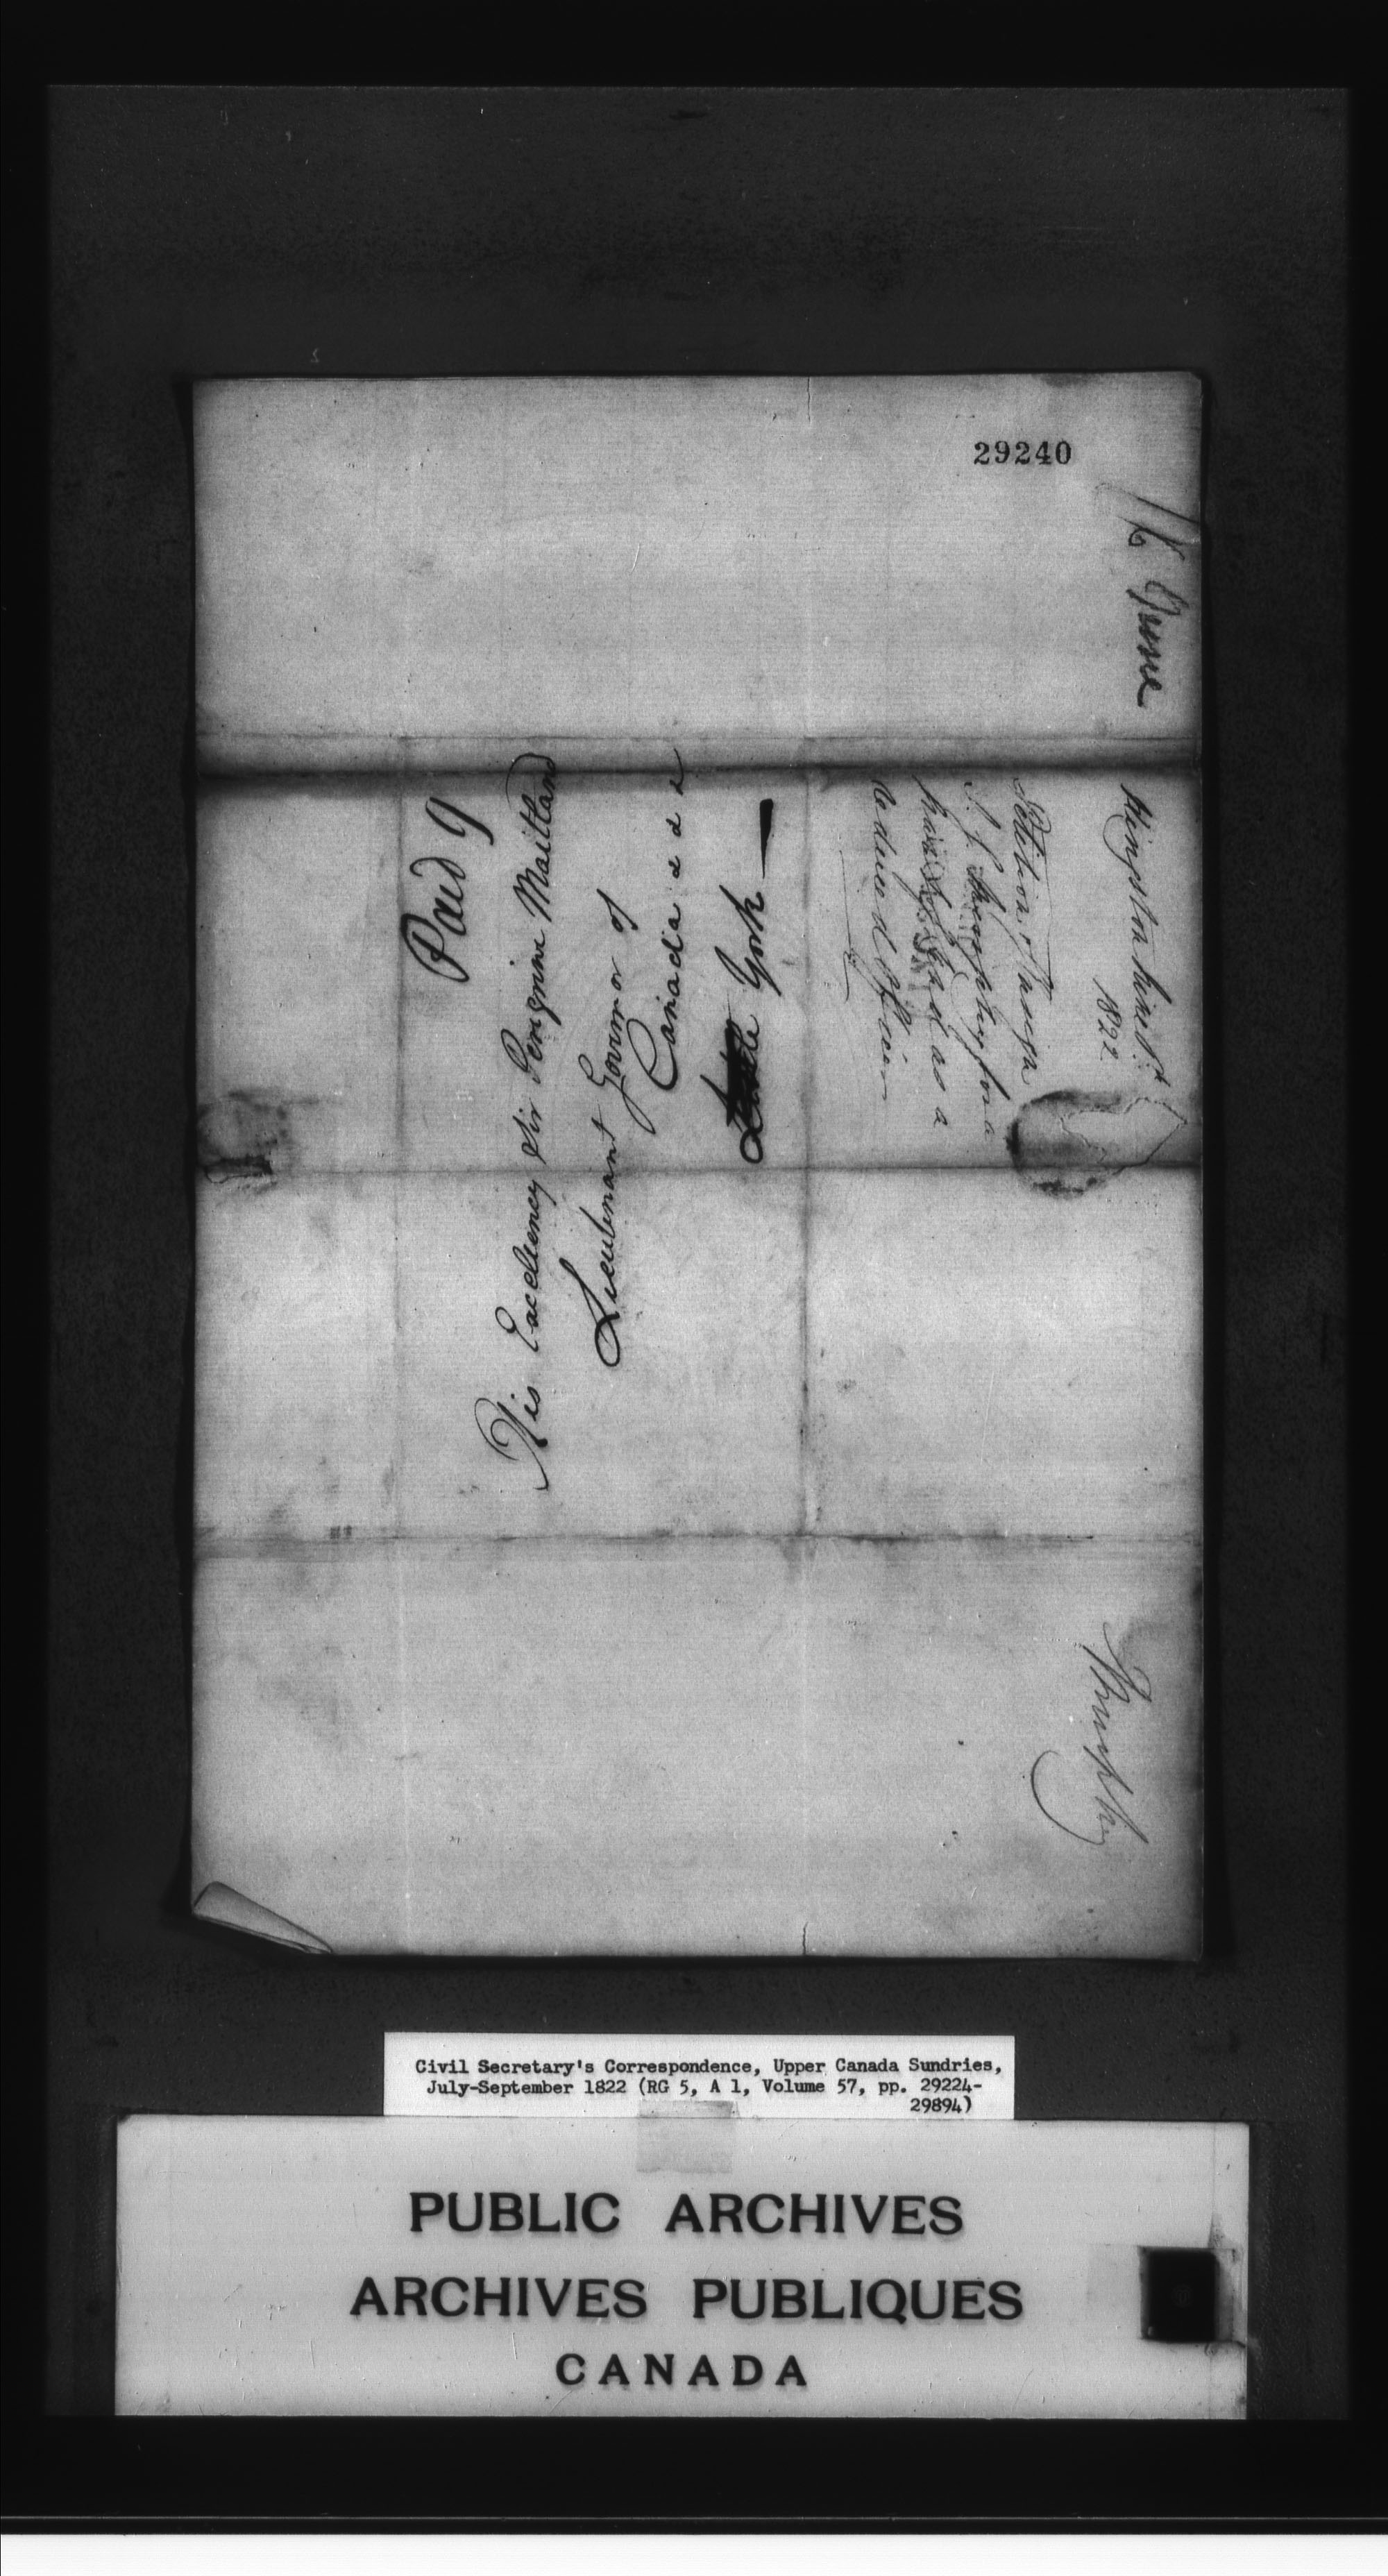 29240
16 June
Kingston
1822
Petition of
for a
as a
reduced Officer
Paid 9
His Excellency Sir Peregrine Maitland
Lieutenant Governor of
Canada &c &c
York
Civil Secretary's Correspondence, Upper Canada Sundries,
July-September 1822 (RG 5, A 1, Volume 57, pp. 29224-
29894)
PUBLIC ARCHIVES
ARCHIVES PUBLIQUES
CANADA